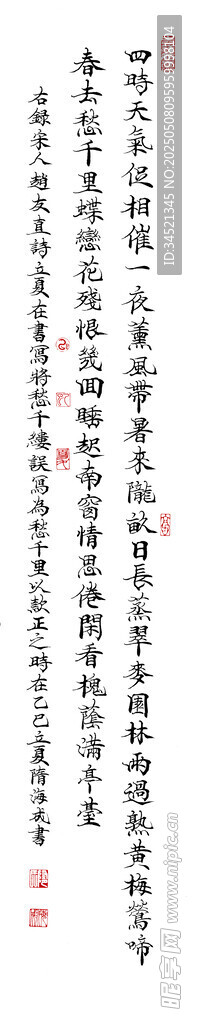 四時天氣促相催一夜薰風帶暑來隴畝日長蒸翠麥園林雨過熟黃梅鶯啼
春去愁千里蝶戀花殘恨幾回睡起南窗情思倦閑看槐蔭滿亭臺
右錄宋人趙友直詩立夏在書寫將愁千縷誤寫為愁千里以款正之時在乙巳立夏隋海成書
ID:34521345 NO:20250508095959998104
昵享网 www.nipic.cn